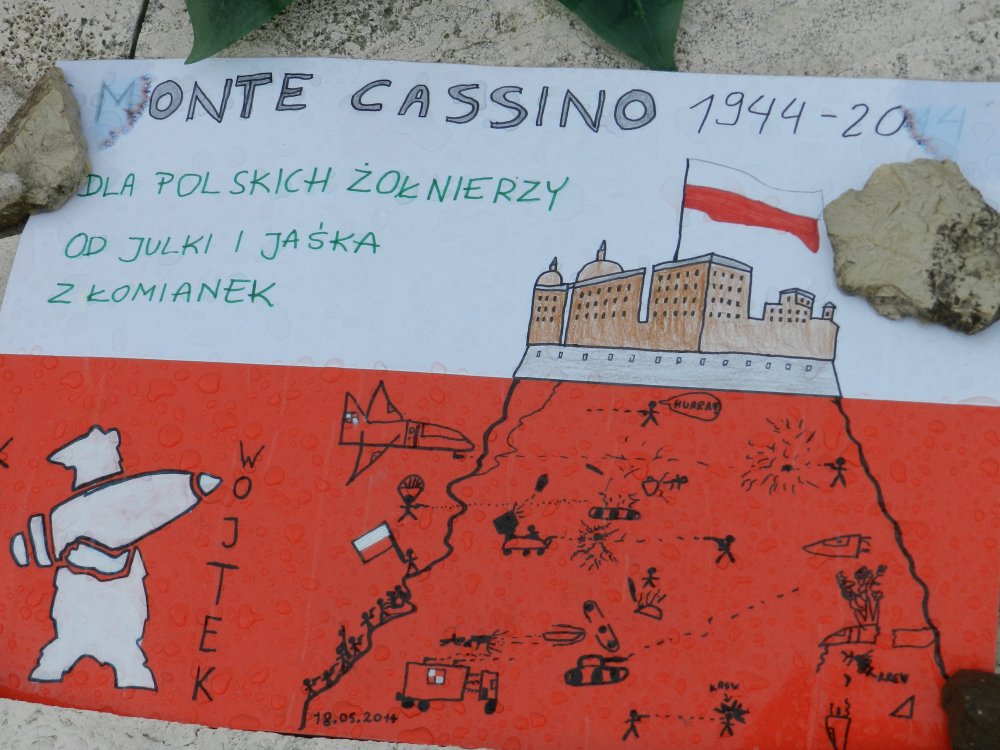 MONTE CASSINO 1944-2014
DLA POLSKICH ŻOŁNIERZY
OD JULKI I JAŚKA
Z ŁOMIANEK
HURRA!
WOJTEK
KREW
KREW
18.05.2014